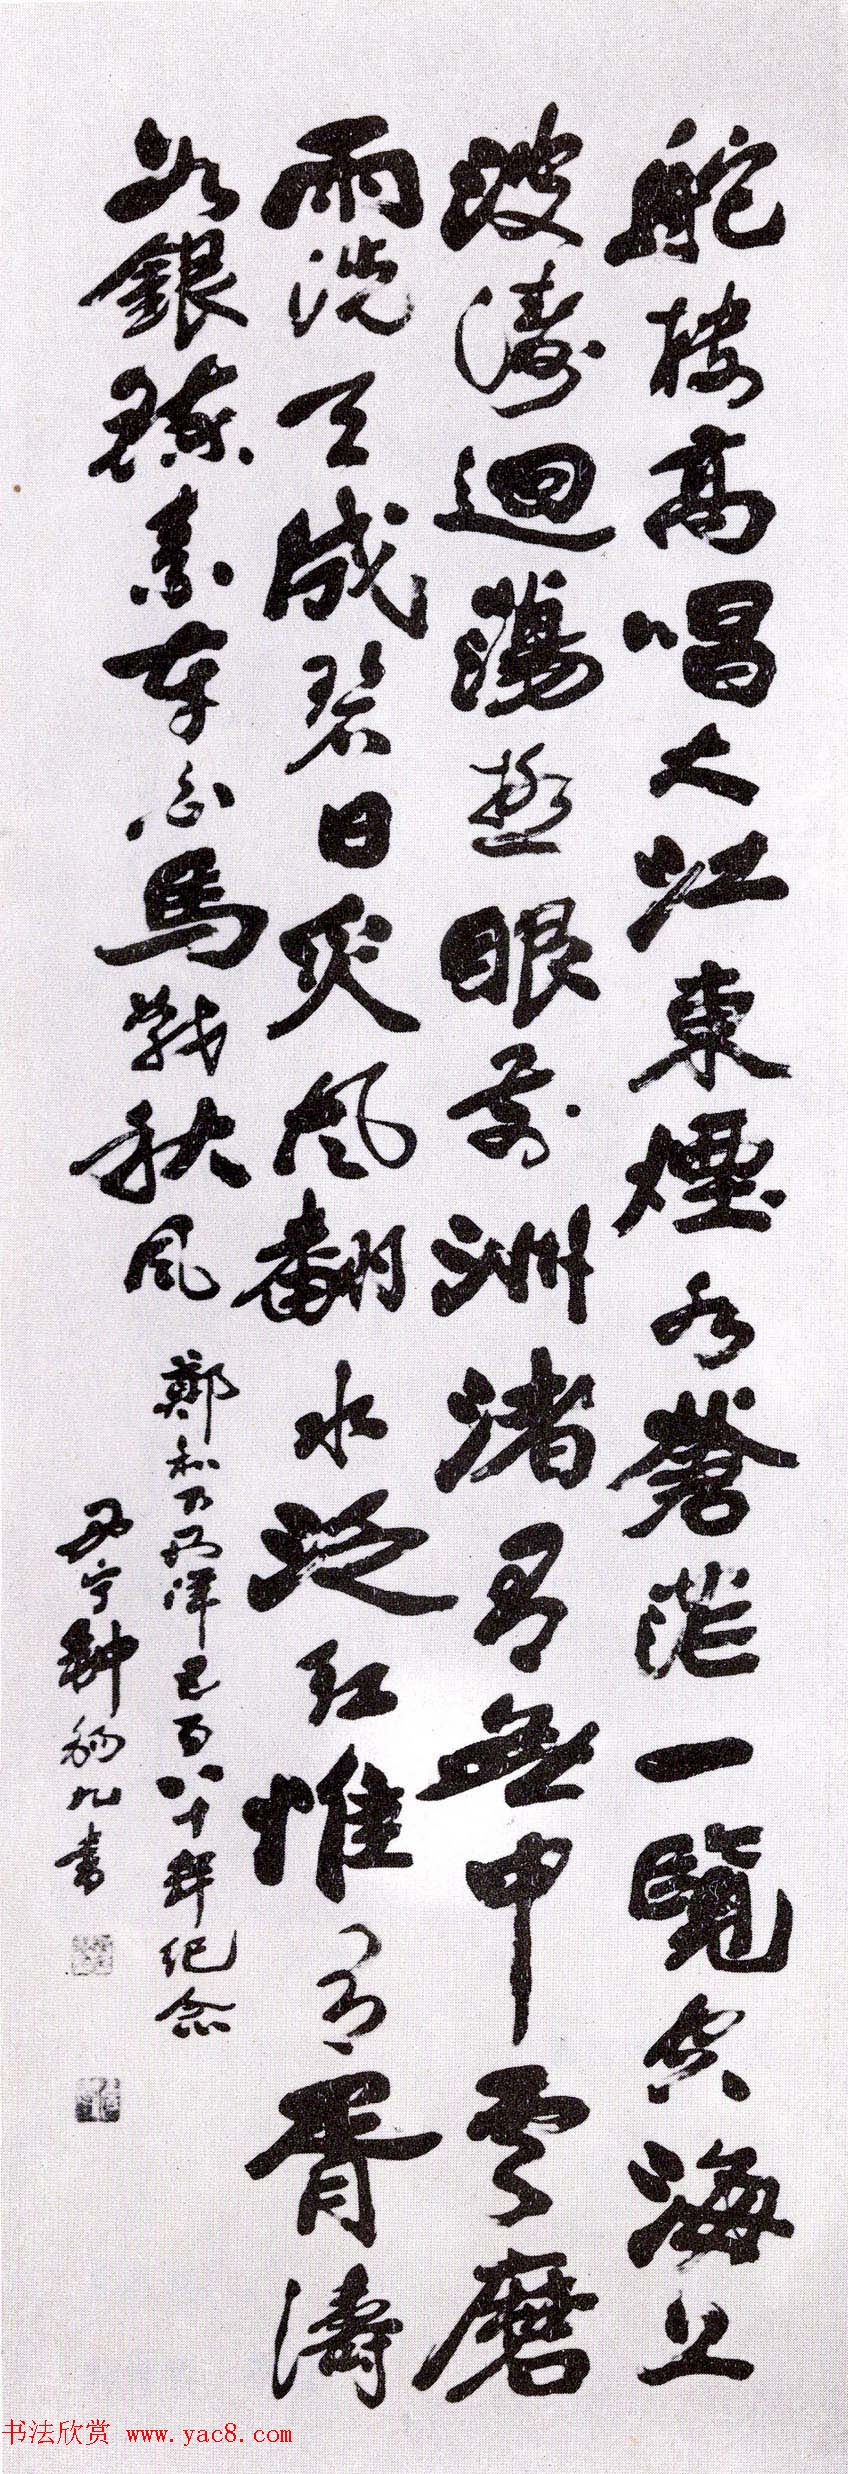 舵樓高唱大江東煙水蒼茫一覽空海上
波濤迴蕩極眼前洲渚有無中雲磨
雨洗天成碧日炙風翻水泛紅惟有胥濤
如銀練素車白馬戰秋風
鄭和下西洋五百八十年紀念
宁鍾錫九書
书法欣赏 www.yac8.com